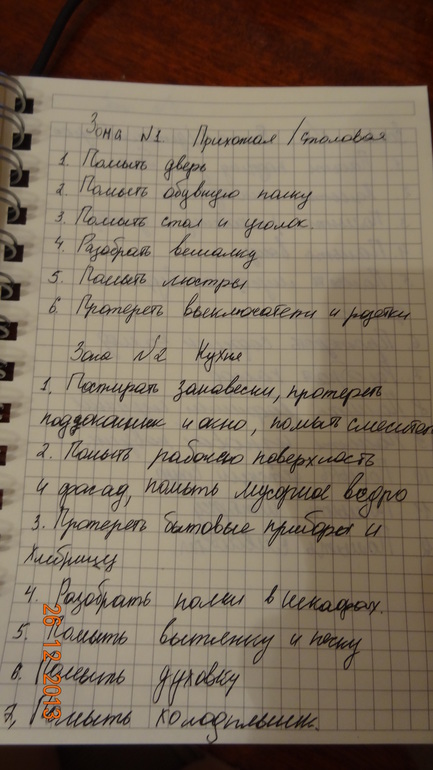 Зона №1 Прихожая / Столовая
1. Помыть дверь
2. Помыть обувную полку
3. Помыть стол и уголок.
4. Разобрать вешалку
5. Помыть люстры
6. Протереть выключатели и розетки
Зона №2 Кухня
1. Постирать занавески, протереть
подоконник и окно, помыть смесител
2. Помыть рабочую поверхность
и фасад, помыть мусорное ведро
3. Протереть бытовые приборы и
хлебницу
4. Разобрать полки в шкафах.
5. Помыть вытяжку и печку
6. Помыть духовку
7. Помыть холодильник.
26 12 2013